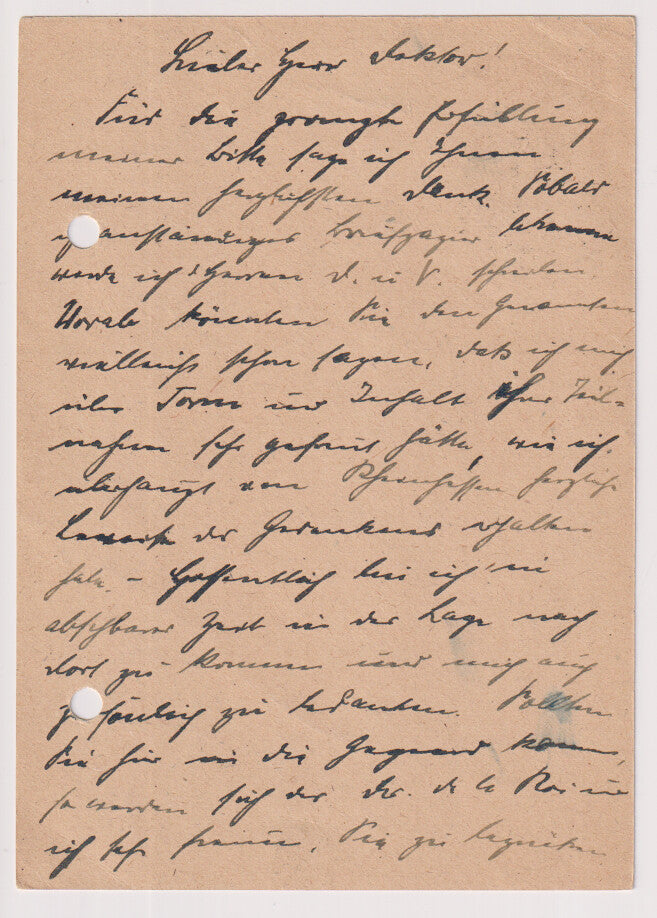 Lieber Herr Doktor!
Für die prompte Erfüllung
meiner Bitte sage ich Ihnen
meinen herzlichsten Dank. Sobald
ich anständiges Briefpapier bekomme
werde ich Herren D. u V. schreiben
Vorab könnten Sie den Genannten
vielleicht schon sagen, daß ich mich
über Form und Inhalt ihrer Teil-
nahme sehr gefreut hätte, wie ich
überhaupt von Rheinhessen herzliche
Beweise des Gedenkens erhalten
habe. - Hoffentlich bin ich in
absehbarer Zeit in der Lage nach
dort zu kommen und mich auch
persönlich zu bedanken. Sollten
Sie hier in die Gegend kommen,
so werden sich der Dr. de la Roi und
ich sehr freuen, Sie zu begrüßen